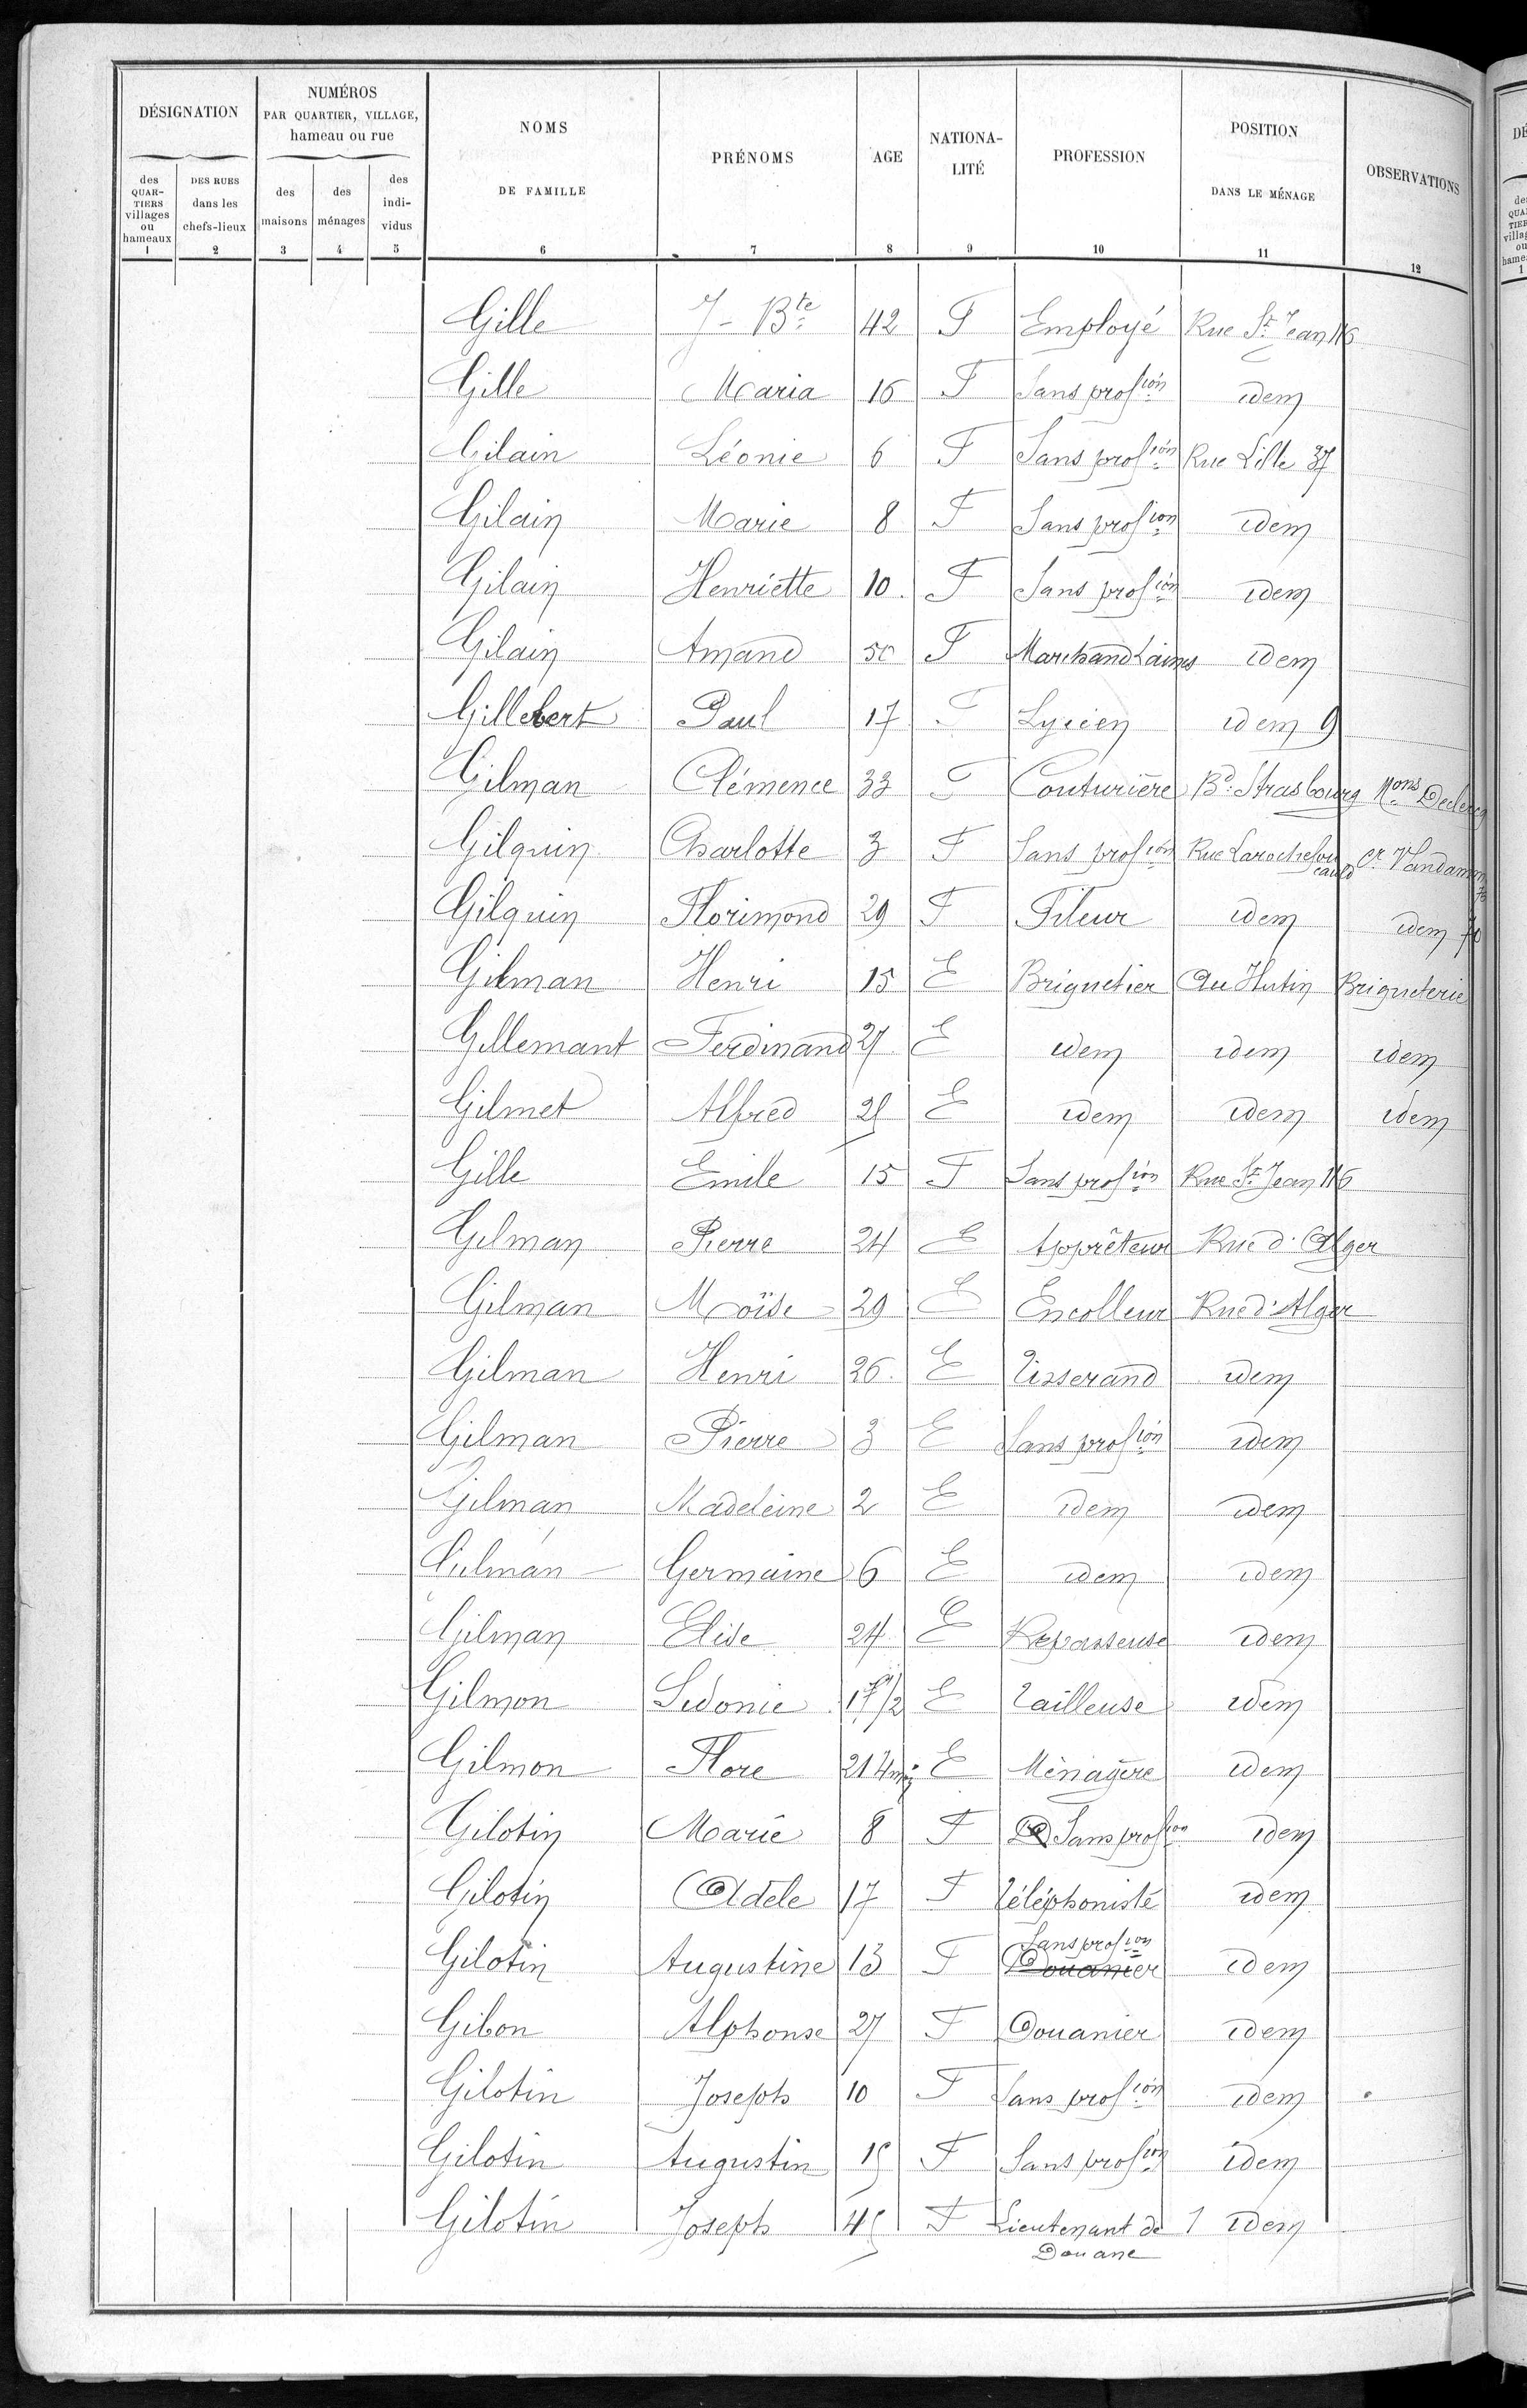 DÉSIGNATION
NUMÉROS
PAR QUARTIER, VILLAGE,
hameau ou rue
NOMS
DE FAMILLE
PRÉNOMS
AGE
NATIONA-
LITÉ
PROFESSION
POSITION
DANS LE MÉNAGE
OBSERVATIONS
des
QUAR-
TIERS
villages
ou
hameaux
DES RUES
dans les
chefs-lieux
des
maisons
des
ménages
des
indi-
vidus
1 2 3 4 5 6 7 8 9 10 11 12
Gille J-Bte 42 F Employé Rue St Jean 116
Gille Maria 16 F Sans profion idem
Gilain Léonie 6 F Sans profion Rue Lille 37
Gilain Marie 8 F Sans profion idem
Gilain Henriette 10 F Sans profion idem
Gilain Amand 50 F Marchand Laines idem
Gillebert Paul 17 F Lycéen idem 9
Gilman Clémence 33 F Couturière Bd Strasbourg Mons Declercq
Gilquin Charlotte 3 F Sans profion Rue Larochefoucauld Cr Vandamm 70
Gilquin Florimond 29 F Fileur idem idem 70
Gilman Henri 15 E Briquetier Au Hutin Briqueterie
Gillemant Ferdinand 27 E idem idem idem
Gilmet Alfred E idem idem idem
Gille Emile 15 F Sans profion Rue St Jean 116
Gilman Pierre 24 E Apprêteur Rue d'Alger
Gilman Moïse 29 E Encolleur Rue d'Alger
Gilman Henri 26 E Tisserand idem
Gilman Pierre 3 E Sans profion idem
Gilman Madeleine 2 E idem idem
Gilman Germaine 6 E idem idem
Gilman Elise 24 E Repasseuse idem
Gilmon Sidonie E Tailleuse idem
Gilmon Flore 21 4 mois E Ménagère idem
Gilotin Marie 8 F Sans profion idem
Gilotin Adèle 17 F Téléphoniste idem
Gilotin Augustine 13 F Douanier Sans profion idem
Gibon Alphonse 27 F Douanier idem
Gilotin Joseph 10 F Sans profion idem
Gilotin Augustin 15 F Sans profion idem
Gilotin Joseph 45 F Lieutenant de 1 idem
Douane